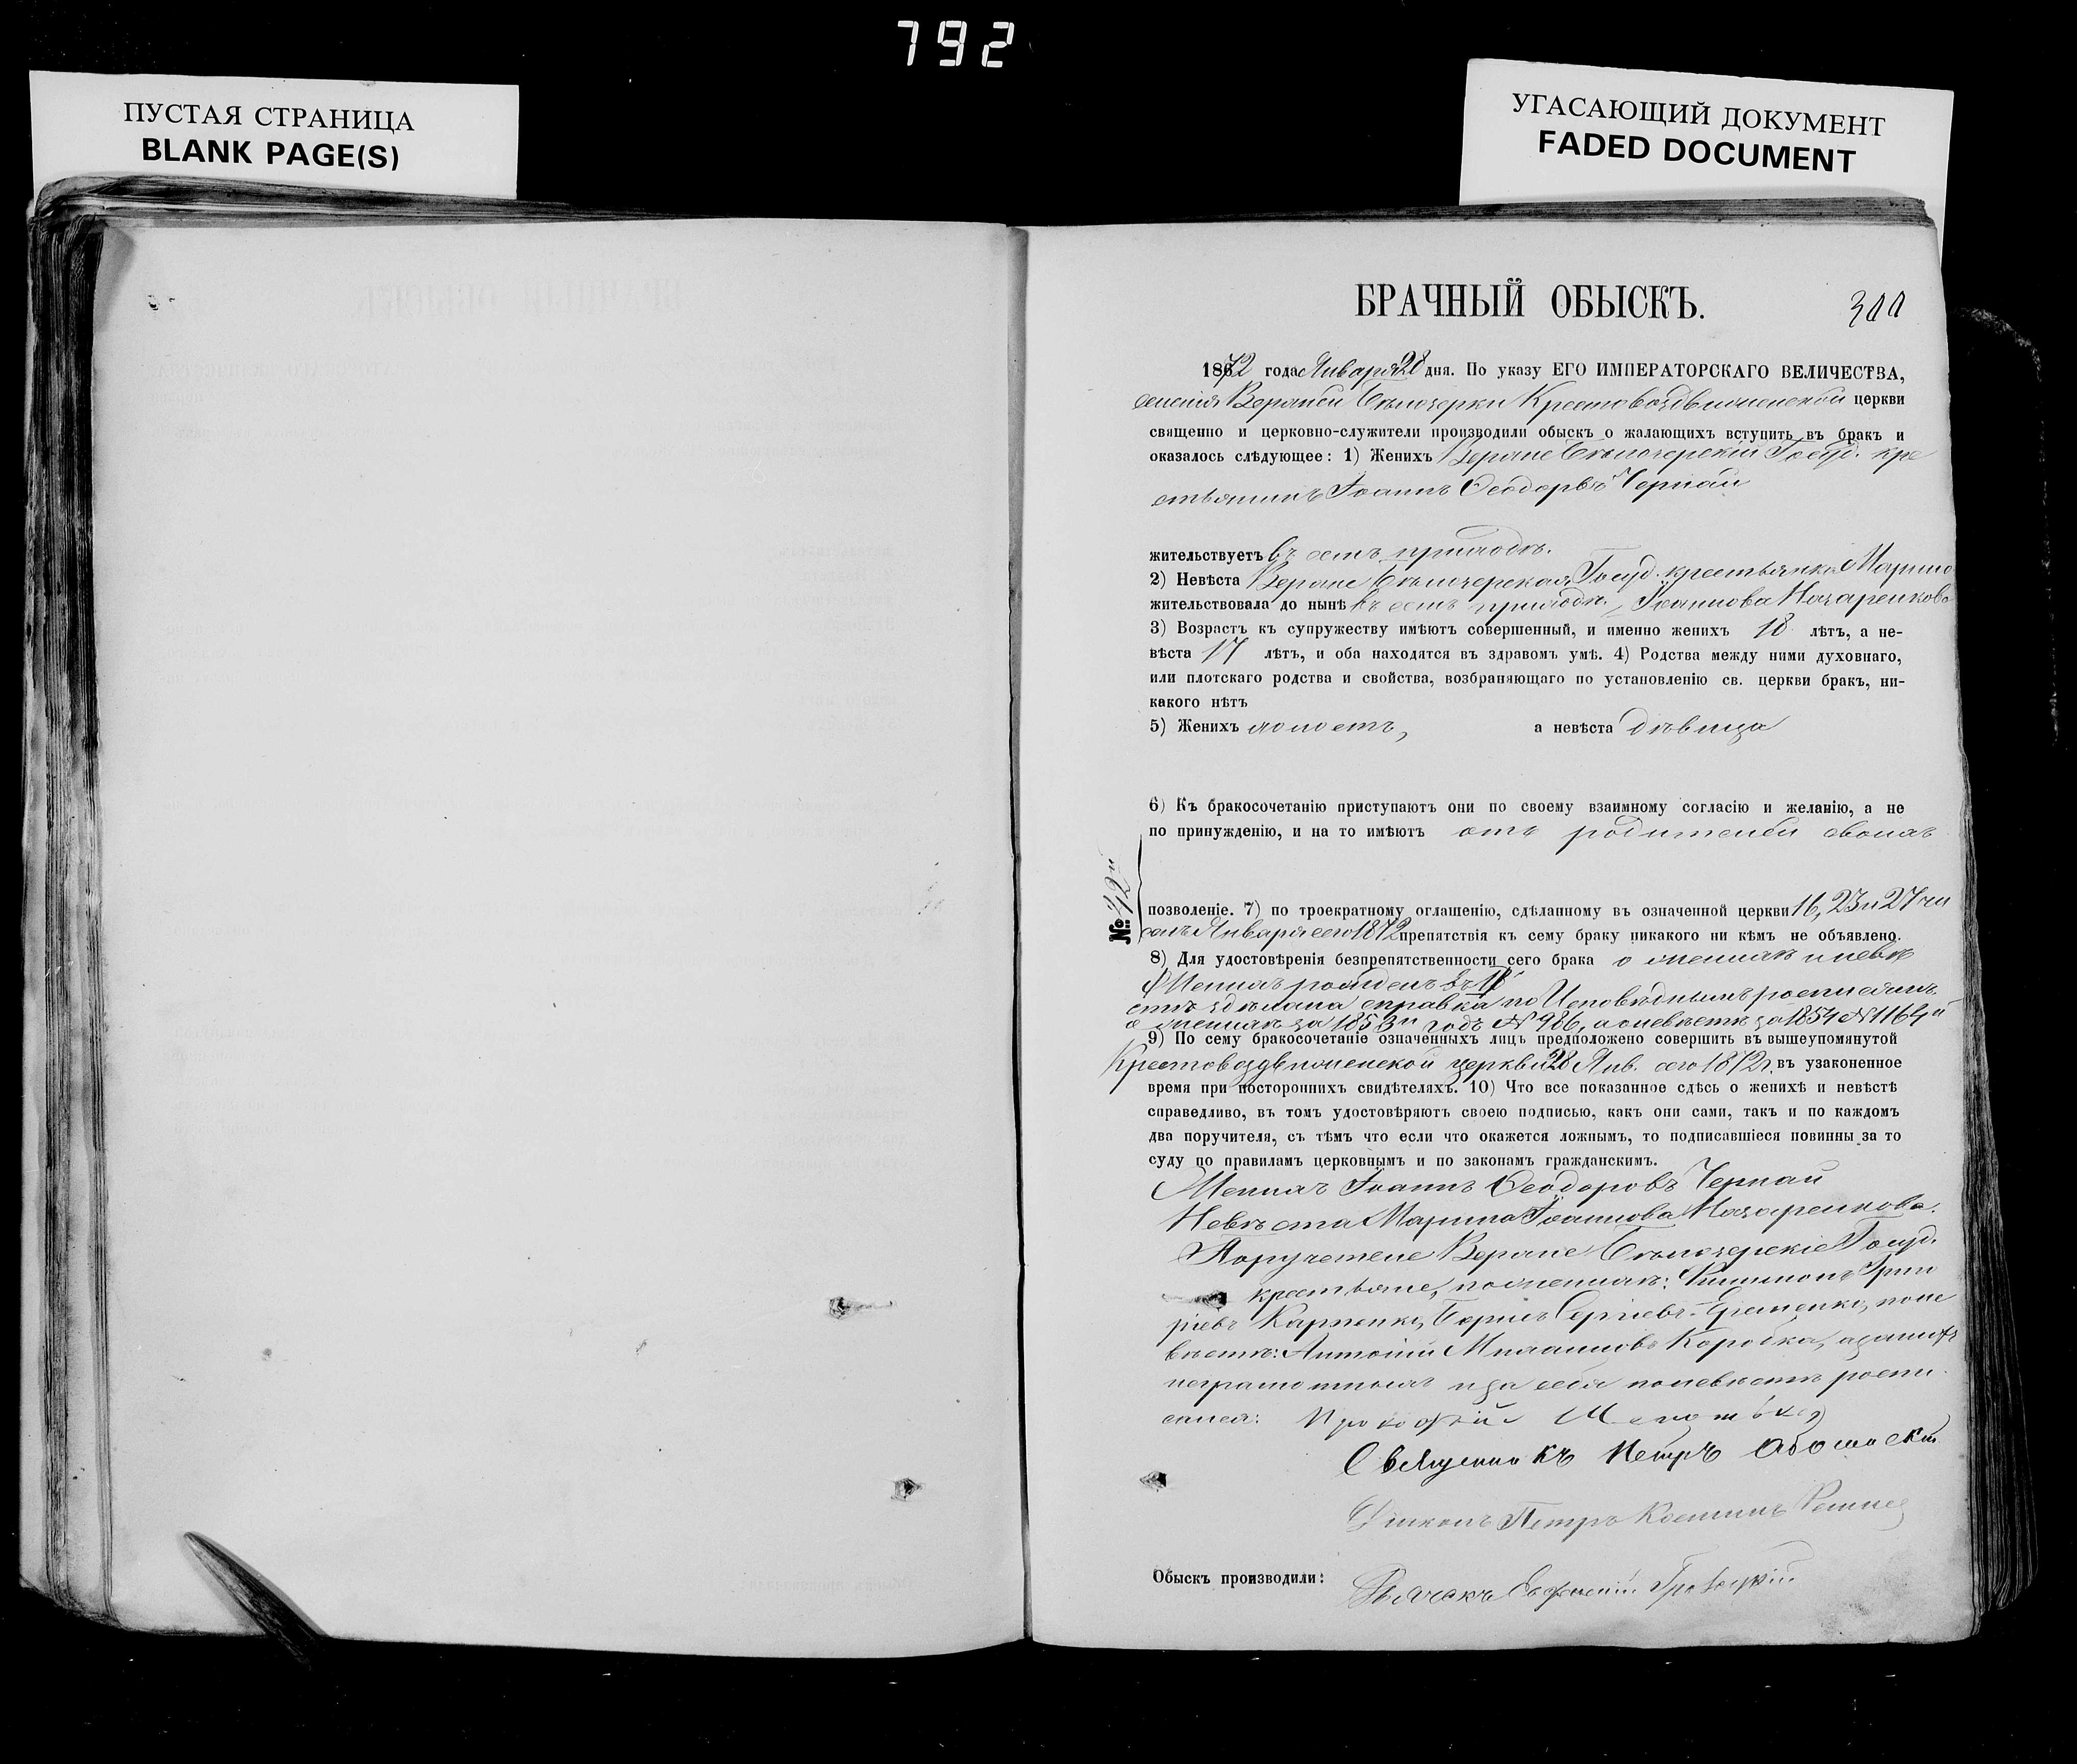 792
ПУСТАЯ СТРАНИЦА
BLANK PAGE(S)
УГАСАЮЩИЙ ДОКУМЕНТ
FADED DOCUMENT
БРАЧНЫЙ ОБЫСКЪ.
300
1872 года Января 28 дня. По указу ЕГО ИМПЕРАТОРСКАГО ВЕЛИЧЕСТВА,
селенія Верхней Бѣлозерки Крестовоздвиженской церкви
священно и церковно-служители производили обыскъ о жалающихъ вступить въ бракъ и
оказалось слѣдующее: 1) Женихъ Верхне Бѣлозерскій Госуд. кре
стьянинъ Іоаннъ Ѳеодоровъ Чернай
жительствуетъ въ семъ приходѣ.
2) Невѣста Верхне Бѣлозерская Госуд. крестьянка Марина
жительствовала до нынѣ въ семъ приходѣ, Іоаннова Назаренкова
3) Возрастъ къ супружеству имѣютъ совершенный, и именно женихъ 18 лѣтъ, а не-
вѣста 17 лѣтъ, и оба находятся въ здравомъ умѣ. 4) Родства между ними духовнаго,
или плотскаго родства и свойства, возбраняющаго по установленію св. церкви бракъ, ни-
какого нѣтъ
5) Женихъ холостъ, а невѣста дѣвица
6) Къ бракосочетанію приступаютъ они по своему взаимному согласію и желанію, а не
по принужденію, и на то имѣютъ отъ родителей своихъ
№ 12й
позволеніе. 7) по троекратному оглашенію, сдѣланному въ означенной церкви 16, 23 и 27 чи
слъ Января сего 1872 препятствія къ сему браку никакого ни кѣмъ не объявлено.
8) Для удостовѣренія безпрепятственности сего брака о женихѣ и невѣ
Женихъ рожденъ
стѣ здѣлана справка по Исповѣднымъ росписямъ
о женихѣ за 1853й годъ № 986, а о невѣстѣ за 1854 № 1164й
9) По сему бракосочетаніе означенныхъ лицъ предположено совершить въ вышеупомянутой
Крестовоздвиженской церкви 28 Янв. сего 1872 г. въ узаконенное
время при постороннихъ свидѣтеляхъ. 10) Что все показанное сдѣсь о женихѣ и невѣстѣ
справедливо, въ томъ удостовѣряютъ своею подписью, какъ они сами, такъ и по каждомъ
два поручителя, съ тѣмъ что если что окажется ложнымъ, то подписавшіеся повинны за то
суду по правиламъ церковнымъ и по законамъ гражданскимъ.
Женихъ Іоаннъ Ѳеодоровъ Чернай
Невѣста Марина Іоаннова Назаренкова.
Поручители Верхне Бѣлозерскіе Госуд.
крестьяне, по женихѣ: Филимонъ Григо
ріевъ Карпенко, Борисъ Сергіевъ Ерешенко, по не
вѣстѣ: Антоній Михаиловъ Коробка, а за нихъ
неграмотныхъ и за себя по невѣстѣ роспи
сался: Прокофій
Священникъ Петръ
Діаконъ Петръ Костинъ
Обыскъ производили: Дьячекъ Евфимій